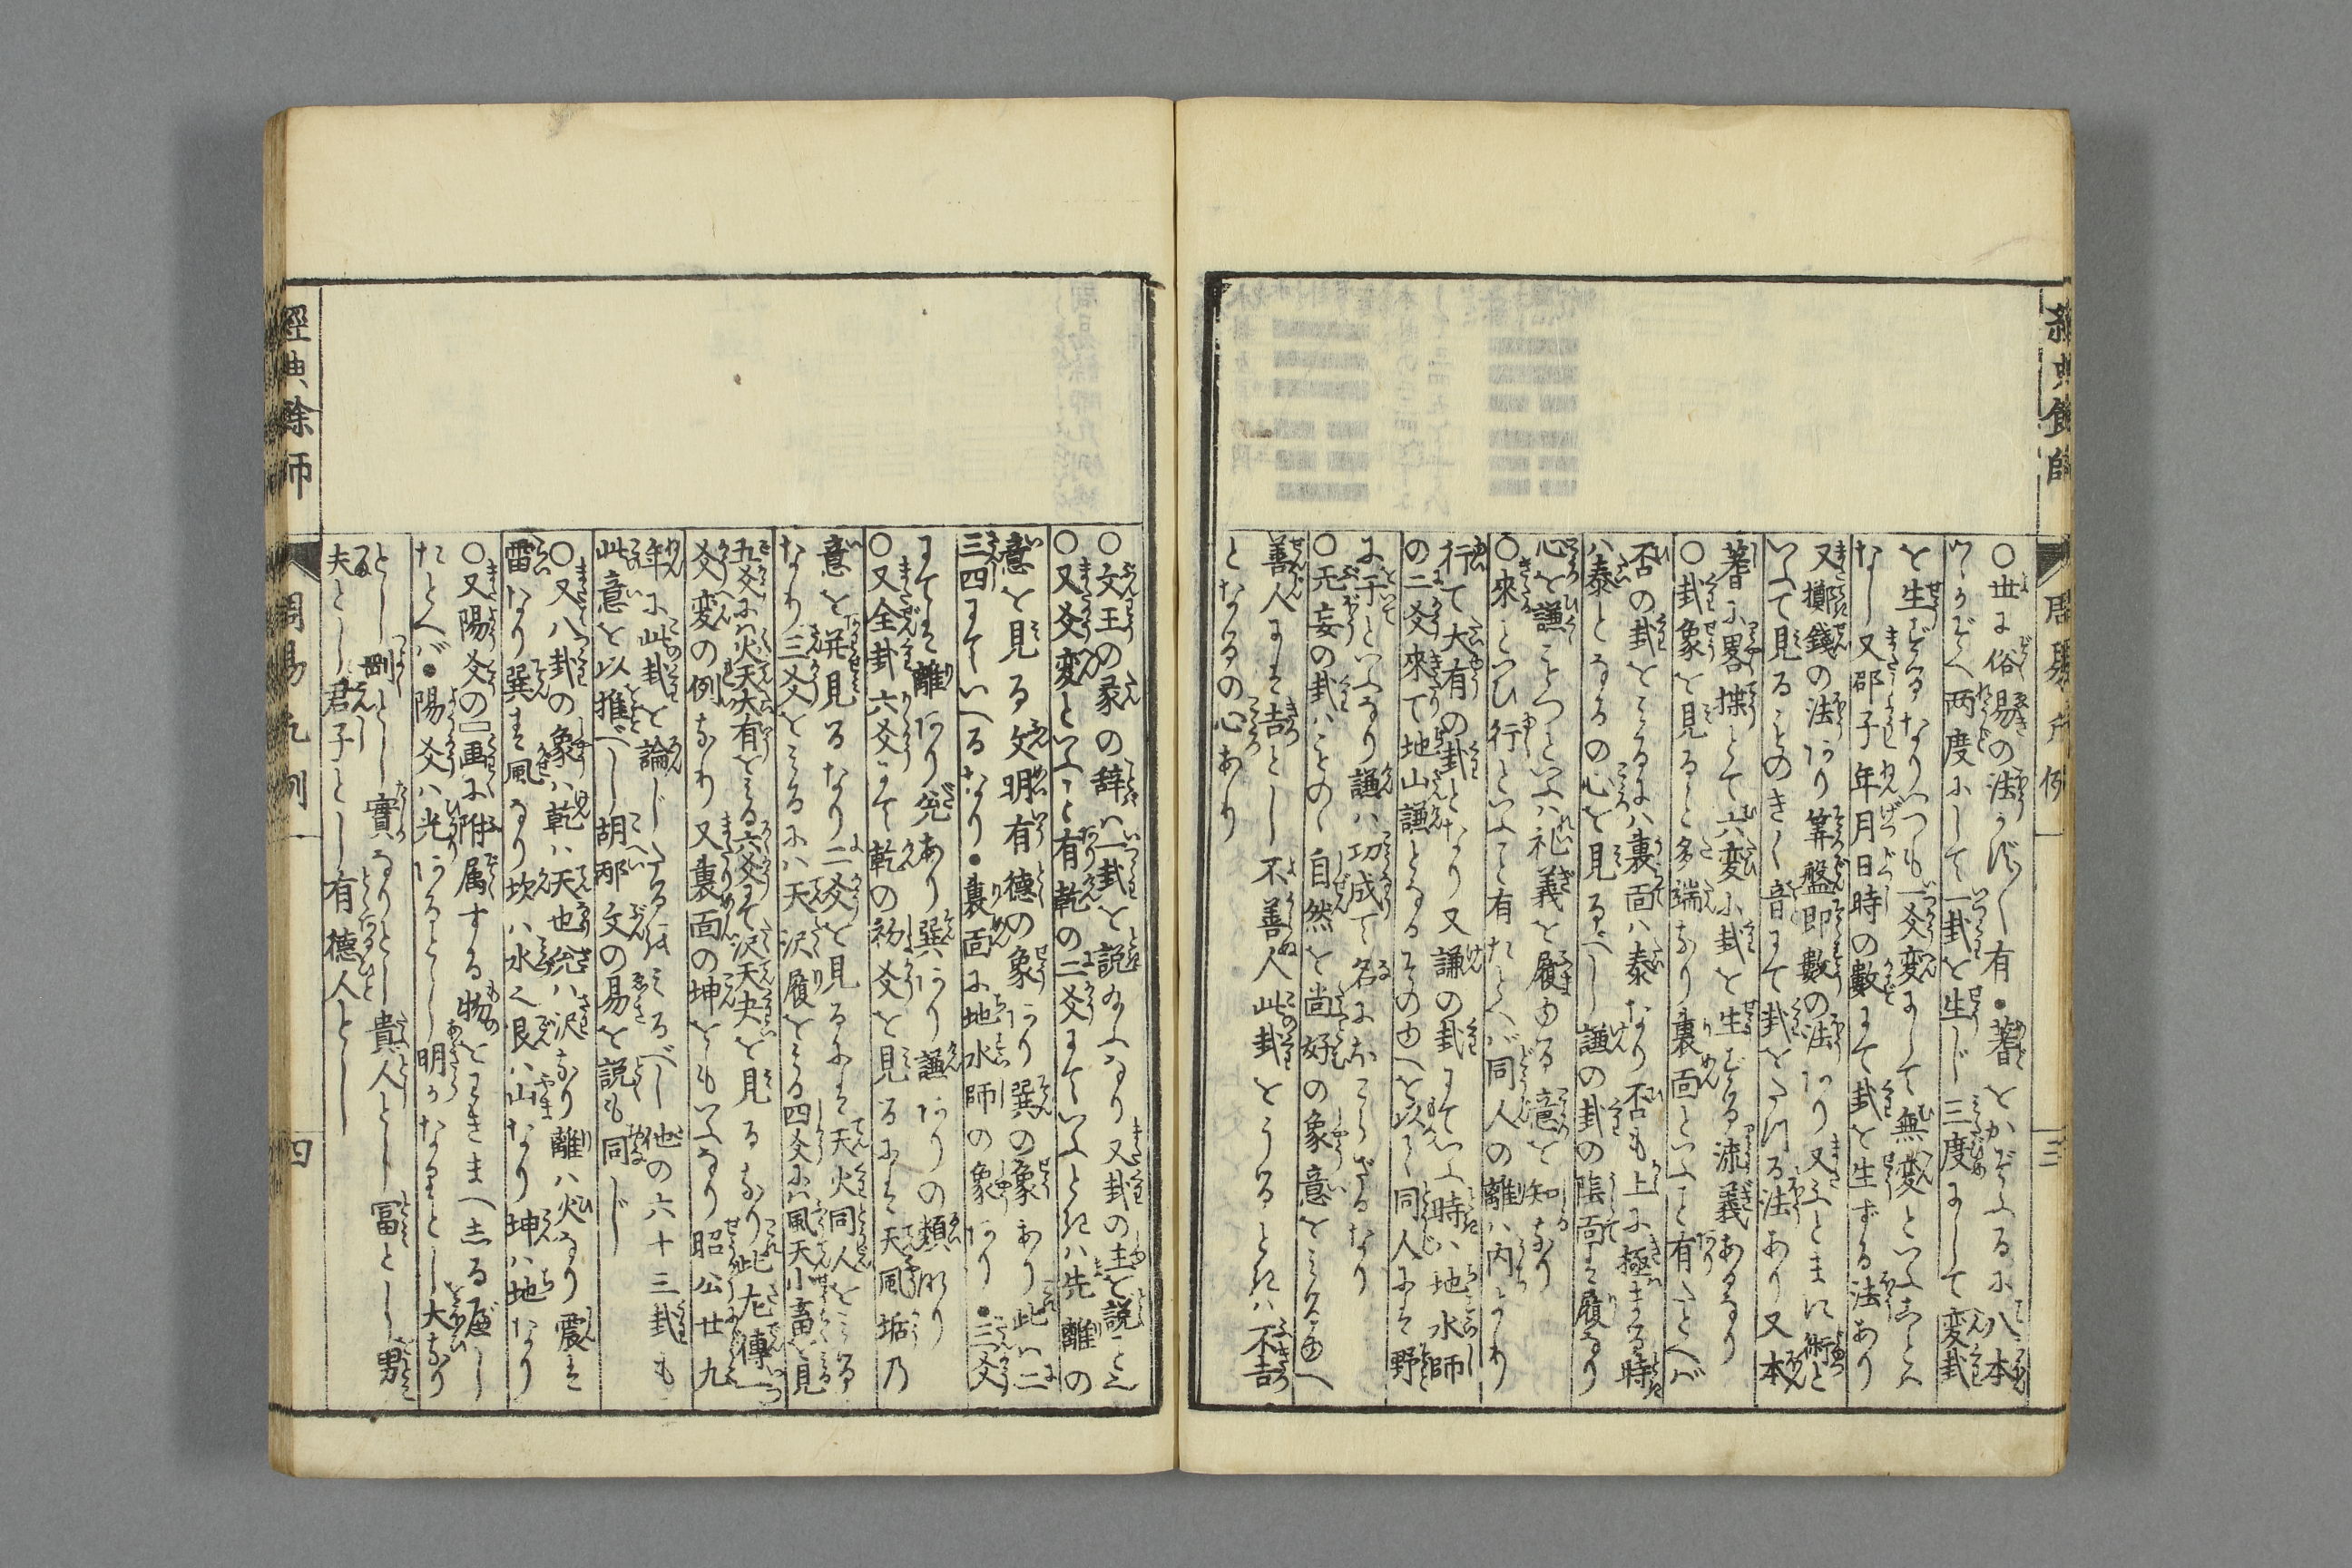 經典餘師 周易凡例 三
○世に俗易の法さま〴〵有・蓍をかぞふるに八本
づゝかぞへ両度にして一卦を生じ三度にして変卦
を生ずるなりいつも一爻変にして無変といふことは
なし又邵子年月日時の數にて卦を生ずる法あり
又擲錢の法あり筭盤即數の法あり又
いふて見ることのきく音にて卦をたつる法あり又本
蓍に畧揲とて六変に卦を生ずる流義あるなり
○卦象を見ること多端なり裏面といふこと有たとへば
否の卦をとるには裏面ハ泰なり否も上に極まる時
ハ泰となるの心を見るべし謙の卦の陰面は履なり
心を謙ことつといふハ礼義を履ゆる意を知なり
○來といひ行といふこと有たとへバ同人の離ハ内より
行て大有の卦となり又謙の卦にていふ時ハ地水師
の二爻來て地山謙となるそのゆへを以て同人にそ野
に于といふなり謙ハ功成て名にほこらざるなり
○无妄の卦ハことの〳〵自然を尚好の象意をみるゆへ
善人にそ吉とし不善人此卦をうるときハ不吉
となるの心あり
○文王の彖の辞ハ一卦を説給ふなり又卦の主を説こと
○又爻変といふこと有乾の二爻にていふときハ先離の
意を見る文明有德の象あり巽の象あり此ハ二
三四にていへるなり・裏面に地水師の象あり・三爻
にてそ離あり兌あり巽あり謙ありの類なり
○又全卦六爻にて乾の初爻を見るにそ天風姤乃
意を并見るなり二爻を見るにそ天火同人をとる
なり三爻をとるにハ天沢履をとる四爻にハ風天小畜を見
五爻にハ火天大有をとる六爻にそ沢天夬を見るなり此左傳一
爻変の例なり又裏面の坤をもいふなり昭公廿九
年に此卦を論じたるにてみるべし他の六十三卦も
此意を以推べし胡邴文の易を説も同じ
○又八卦の象ハ乾ハ天也兌ハ沢なり離ハ火なり震そ
雷なり巽そ風なり坎ハ水也艮ハ山なり坤ハ地なり
○又陽爻の一画に附属する物をときまへ志るべし
たとへバ・陽爻ハ光あるとし明かなるとし大なり
とし剛とし實なりとし貴人とし冨とし男
夫とし君子とし有德人とし
經典餘師 周易凡例 四